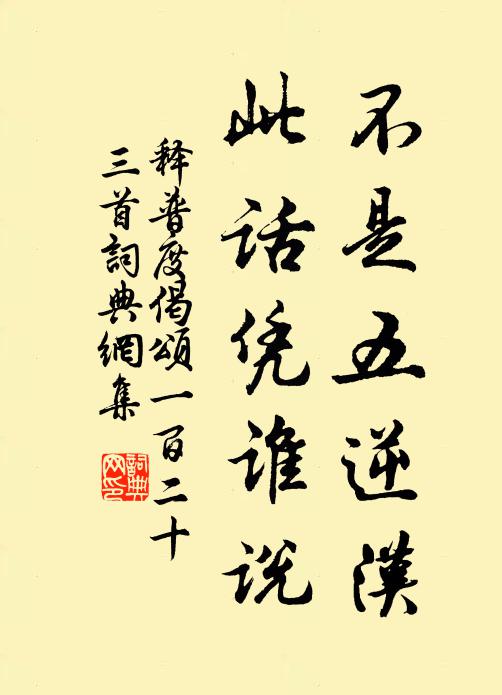 不是五逆漢
此话凭谁说
释普度偈頌一百二十
三首詞典網集
詞典
网印